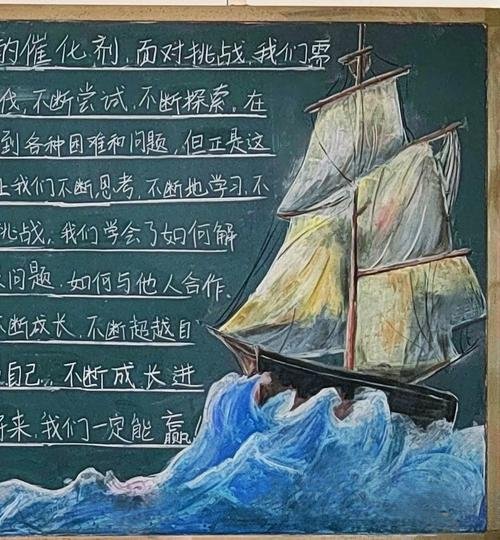 的催化剂,面对挑战,我们需
伐,不断尝试,不断探索。在
到各种困难和问题,但正是这
让我们不断思考,不断地学习,不
挑战,我们学会了如何解
问题,如何与他人合作.
不断成长,不断超越自
自己,不断成长进
将来,我们一定能赢